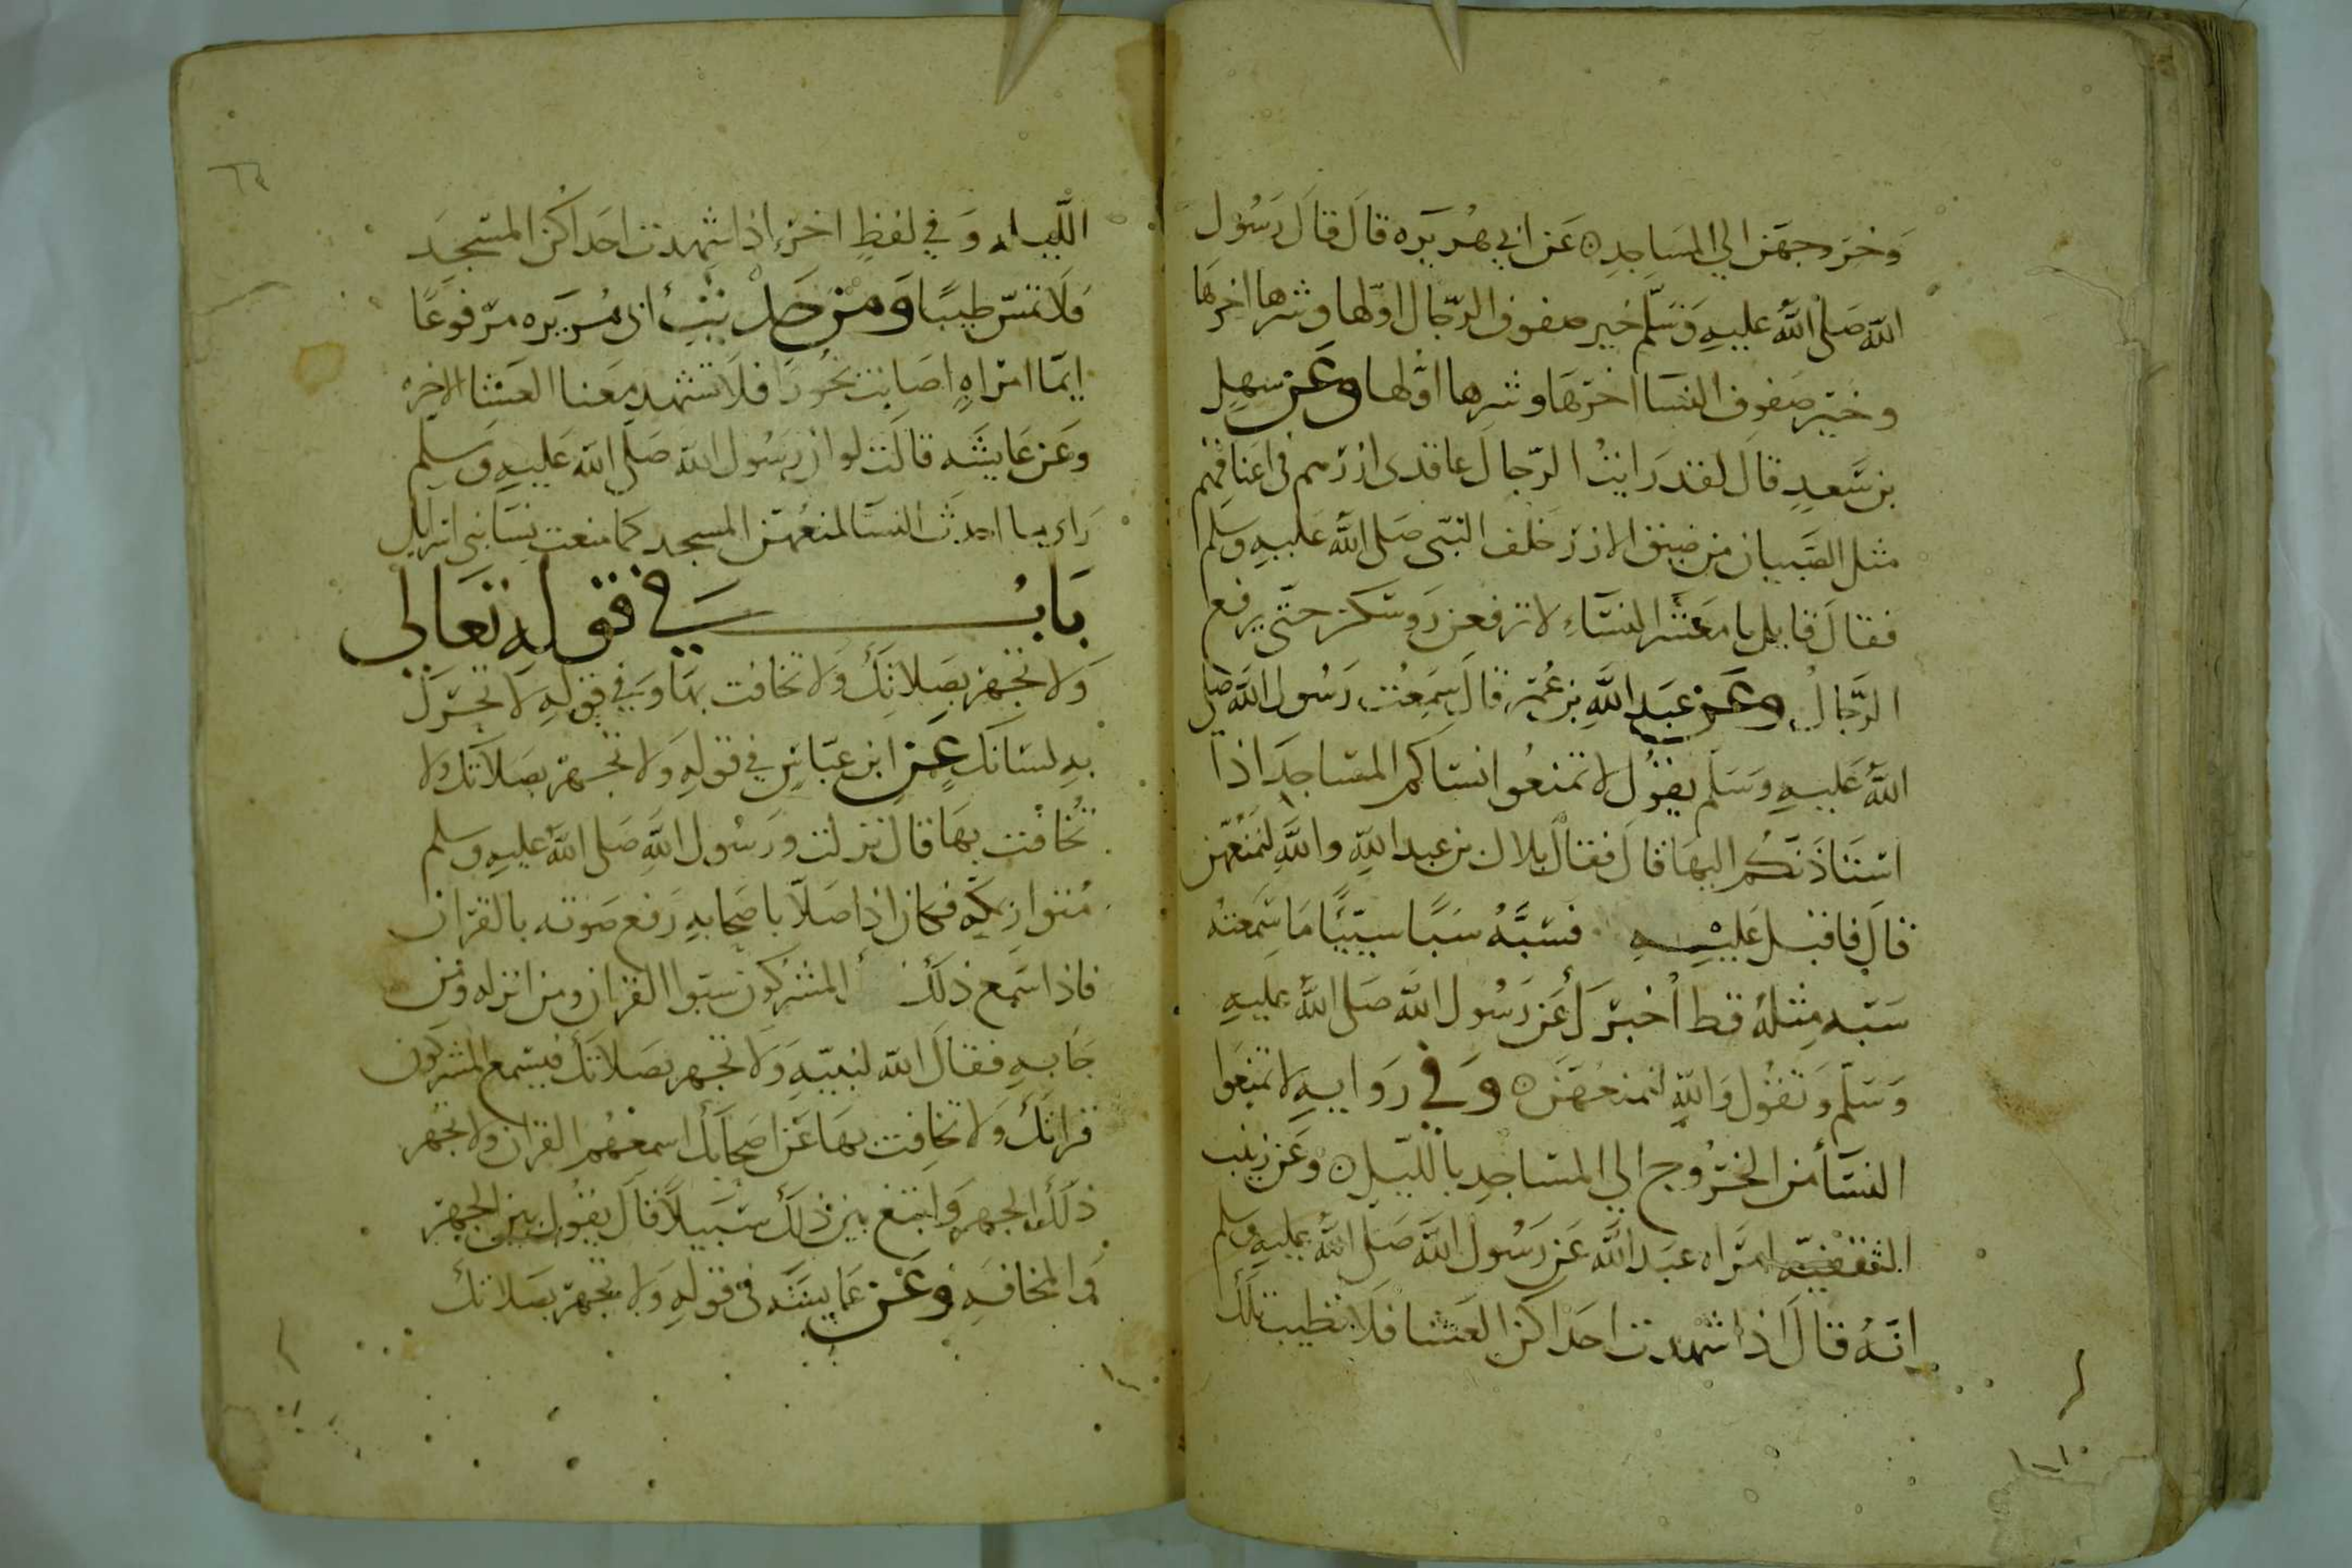 وخروجهن الي المساجد ن عن ابي هريره قال قال رسول
الله صلى الله عليه وسلم خير صفوف الرجال اولها وشرها اخرها
وخير صفوف النسا اخرها وشرها اولها وعن سهل
بن سعد قال لقد رايت الرجال عاقدى ازرهم في اعناقهم
مثل الصبيان من ضيق الازر خلف النبي صلى الله عليه وسلم
فقال قايل يا معشر النساء لا ترفعن روسكن حتى يرفع
الرجال وعن عبد الله بن عمر قال سمعت رسول الله صلى
الله عليه وسلم يقول لا تمنعوا نساكم المساجد اذا
استاذنكم اليها قال فقال بلال بن عبد الله والله لنمنعهن
قال فاقبل عليه فسبه سبا سييا ما سمعته
سبه مثله قط اخبرك عن رسول الله صلى الله عليه
وسلم وتقول والله لنمنعهن ن وفي روايه لا تمنعوا
النسا من الخروج الي المساجد بالليل ن وعن زينب
الثقفيه امراه عبد الله عن رسول الله صلى الله عليه وسلم
انه قال اذا شهدت احداكن العشا فلا تطيب تلك
٦٣
الليله وفي لفظ اخر اذا شهدت احداكن المسجد
فلا تمس طيبا ومن حديث ابي هريره مرفوعا
ايما امراه اصابت بخورا فلا تشهد معنا العشا الاخره
وعن عايشه قالت لو ان رسول الله صلى الله عليه وسلم
راى ما احدث النسا لمنعهن المسجد كما منعت نسا بني اسرايل
باب في قوله تعالى
ولا تجهر بصلاتك ولا تخافت بها وفي قوله لا تحرك
به لسانك عن ابن عباس في قوله ولا تجهر بصلاتك ولا
تخافت بها قال نزلت ورسول الله صلى الله عليه وسلم
متوار بمكه فكان اذا صلا باصحابه رفع صوته بالقران
فاذا سمع ذلك المشركون سبوا القران ومن انزله ومن
جا به فقال الله لنبيه ولا تجهر بصلاتك فيسمع المشركون
قراتك ولا تخافت بها عن اصحابك اسمعهم القران ولا تجهر
ذلك الجهر وابتغ بين ذلك سبيلا قال يقول بين الجهر
والمخافه وعن عايشه في قوله ولا تجهر بصلاتك